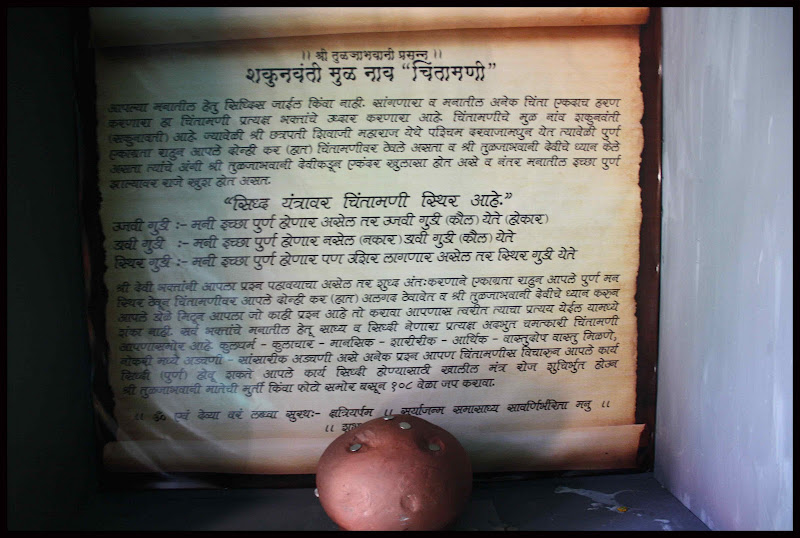 ।। श्री तुळजाभवानी प्रसन्न ।।
शकुनवंती मुळ नाव “चिंतामणी”
आपल्या मनातील हेतु सिध्दिस जाईल किंवा नाही. सांगणारा व मनातील अनेक चिंता एकदाच हरण
करणारा हा चिंतामणी प्रत्यक्ष भक्तांचे उध्दार करणारा आहे. चिंतामणीचे मुळ नांव शकुनवंती
(सकुनावती) आहे. ज्यावेळी श्री छत्रपती शिवाजी महाराज येथे पश्चिम दरवाजामधुन येत त्यावेळी पुर्ण
एकाग्रता राहुन आपले दोन्ही कर (हात) चिंतामणीवर ठेवले असता व श्री तुळजाभवानी देवीचे ध्यान केले
असता त्यांचे अंगी श्री तुळजाभवानी देवीकडून एकंदर खुलासा होत असे व नंतर मनातील इच्छा पुर्ण
झाल्यावर राजे खुश होत असत.
“सिध्द यंत्रावर चिंतामणी स्थिर आहे.”
उजवी गुडी :- मनी इच्छा पुर्ण होणार असेल तर उजवी गुडी (कौल) येते (होकार)
डावी गुडी :- मनी इच्छा पुर्ण होणार नसेल (नकार) डावी गुडी (कौल) येते
स्थिर गुडी :- मनी इच्छा पुर्ण होणार पण उशिर लागणार असेल तर स्थिर गुडी येते
श्री देवी भक्तांनी आपला प्रश्न पहावयाचा असेल तर शुध्द अंतःकरणाने एकाग्रता राहुन आपले पुर्ण मन
स्थिर ठेवून चिंतामणीवर आपले दोन्ही कर (हात) अलगद ठेवावेत व श्री तुळजाभवानी देवीचे ध्यान करुन
आपले डोळे मिटून आपला जो काही प्रश्न आहे तो करावा आपणास त्वरीत त्याचा प्रत्यय येईल यामध्ये
शंका नाही. सर्व भक्तांचे मनातील हेतू साध्य व सिध्दी नेणारा प्रत्यक्ष अदभुत चमत्कारी चिंतामणी
आपणासमोर आहे. कुलधर्म - कुलाचार - मानसिक - शारीरीक - आर्थिक - वास्तुदोष वास्तु मिळणे,
नोकरी मध्ये अडचणी - सांसारीक अडचणी असे अनेक प्रश्न आपण चिंतामणीस विचारुन आपले कार्य
सिध्दी (पुर्ण) होवू शकते आपले कार्य सिध्दी होण्यासाठी खालील मंत्र रोज शुचिर्भुत होऊन
श्री तुळजाभवानी मातेची मुर्ती किंवा फोटो समोर बसून १०८ वेळा जप करावा.
।। ॐ एवं देव्या वरं लब्ध्वा सुरथः- क्षत्रियर्षभ ।। सूर्याजन्म समासाध्य सावर्णिर्भविता मनु ।।